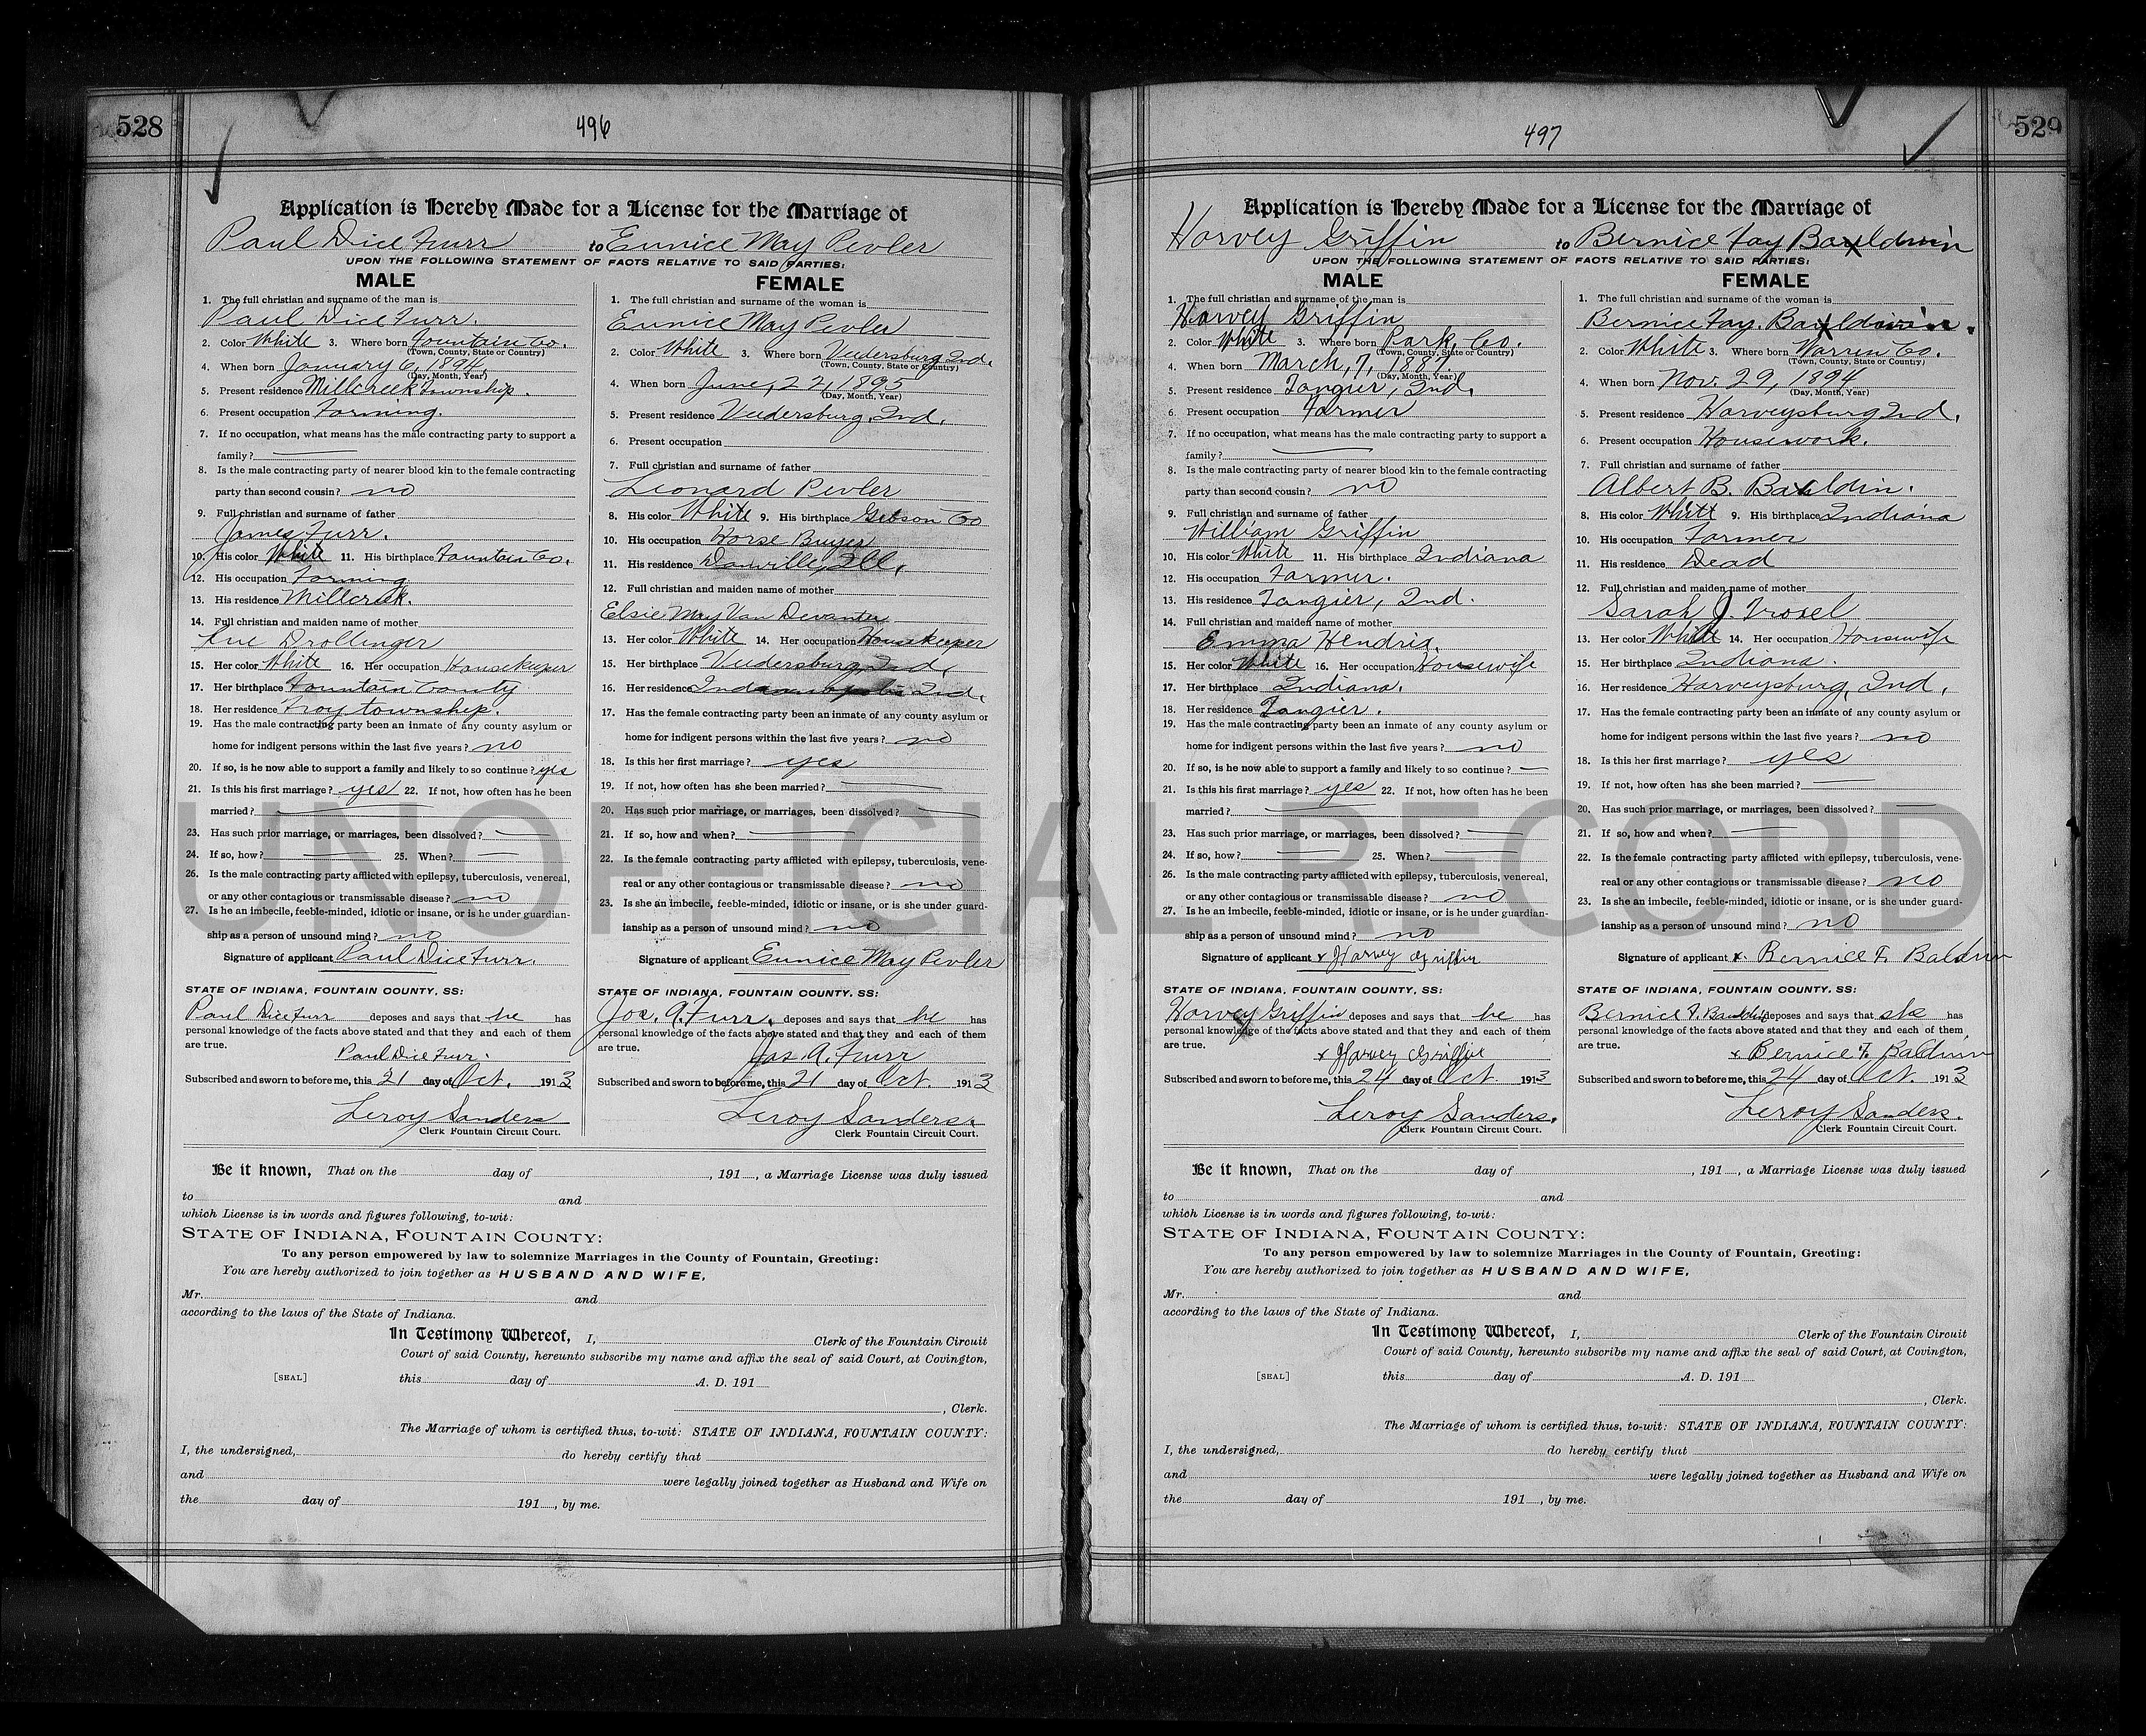 528
496
Application is Hereby Made for a License for the Marriage of
Paul Dice Furr to Eunice May Pevler
UPON THE FOLLOWING STATEMENT OF FACTS RELATIVE TO SAID PARTIES:
MALE
1. The full christian and surname of the man is
Paul Dice Furr.
2. Color White 3. Where born Fountain Co.
(Town, County, State or Country)
4. When born January 6, 1894.
(Day, Month, Year)
5. Present residence Millcreek Township.
6. Present occupation Farming.
7. If no occupation, what means has the male contracting party to support a
family?
8. Is the male contracting party of nearer blood kin to the female contracting
party than second cousin? no
9. Full christian and surname of father
James Furr.
10. His color White 11. His birthplace Fountain Co.
12. His occupation Farming
13. His residence Millcreek.
14. Full christian and maiden name of mother
Drollinger
15. Her color White 16. Her occupation Housekeeper
17. Her birthplace Fountain County
18. Her residence Troy township.
19. Has the male contracting party been an inmate of any county asylum or
home for indigent persons within the last five years? no
20. If so, is he now able to support a family and likely to so continue? yes
21. Is this his first marriage? yes 22. If not, how often has he been
married?
23. Has such prior marriage, or marriages, been dissolved?
24. If so, how? 25. When?
26. Is the male contracting party afflicted with epilepsy, tuberculosis, venereal,
or any other contagious or transmissable disease? no
27. Is he an imbecile, feeble-minded, idiotic or insane, or is he under guardian-
ship as a person of unsound mind? no
Signature of applicant Paul Dice Furr.
STATE OF INDIANA, FOUNTAIN COUNTY, SS:
Paul Dice Furr deposes and says that he has
personal knowledge of the facts above stated and that they and each of them
are true.
Paul Dice Furr.
Subscribed and sworn to before me, this 21 day of Oct. 1913
Leroy Sanders
Clerk Fountain Circuit Court.
FEMALE
1. The full christian and surname of the woman is
Eunice May Pevler
2. Color White 3. Where born Veedersburg Ind.
(Town, County, State or Country)
4. When born June, 22, 1895
(Day, Month, Year)
5. Present residence Veedersburg, Ind.
6. Present occupation
7. Full christian and surname of father
Leonard Pevler
8. His color White 9. His birthplace Gibson Co
10. His occupation Horse Buyer
11. His residence Danville, Ill.
12. Full christian and maiden name of mother
Elsie May Van Devanter
13. Her color White 14. Her occupation Housekeeper
15. Her birthplace Veedersburg, Ind.
16. Her residence Indianapolis Ind.
17. Has the female contracting party been an inmate of any county asylum or
home for indigent persons within the last five years? no
18. Is this her first marriage? yes
19. If not, how often has she been married?
20. Has such prior marriage, or marriages, been dissolved?
21. If so, how and when?
22. Is the female contracting party afflicted with epilepsy, tuberculosis, vene-
real or any other contagious or transmissable disease? no
23. Is she an imbecile, feeble-minded, idiotic or insane, or is she under guard-
ianship as a person of unsound mind? no
Signature of applicant Eunice May Pevler
STATE OF INDIANA, FOUNTAIN COUNTY, SS:
Jas. A. Furr. deposes and says that he has
personal knowledge of the facts above stated and that they and each of them
are true.
Jas. A. Furr
Subscribed and sworn to before me, this 21 day of Oct 1913
Leroy Sanders.
Clerk Fountain Circuit Court.
Be it known, That on the day of , 191 , a Marriage License was duly issued
to and
which License is in words and figures following, to-wit:
STATE OF INDIANA, FOUNTAIN COUNTY:
To any person empowered by law to solemnize Marriages in the County of Fountain, Greeting:
You are hereby authorized to join together as HUSBAND AND WIFE,
Mr. and
according to the laws of the State of Indiana.
In Testimony Whereof, I, Clerk of the Fountain Circuit
Court of said County, hereunto subscribe my name and affix the seal of said Court, at Covington,
[SEAL] this day of A. D. 191
, Clerk.
The Marriage of whom is certified thus, to-wit: STATE OF INDIANA, FOUNTAIN COUNTY:
I, the undersigned, do hereby certify that
and were legally joined together as Husband and Wife on
the day of 191 , by me.
529
497
Application is Hereby Made for a License for the Marriage of
Harvey Griffin to Bernice Fay Bauldwin
UPON THE FOLLOWING STATEMENT OF FACTS RELATIVE TO SAID PARTIES:
MALE
1. The full christian and surname of the man is
Harvey Griffin
2. Color White 3. Where born Park, Co.
(Town, County, State or Country)
4. When born March, 7, 1887.
(Day, Month, Year)
5. Present residence Tangier, Ind.
6. Present occupation Farmer
7. If no occupation, what means has the male contracting party to support a
family?
8. Is the male contracting party of nearer blood kin to the female contracting
party than second cousin? no
9. Full christian and surname of father
William Griffin
10. His color White 11. His birthplace Indiana
12. His occupation Farmer.
13. His residence Tangier, Ind.
14. Full christian and maiden name of mother
Emma Hendrix.
15. Her color White 16. Her occupation Housewife
17. Her birthplace Indiana.
18. Her residence Tangier.
19. Has the male contracting party been an inmate of any county asylum or
home for indigent persons within the last five years? no
20. If so, is he now able to support a family and likely to so continue?
21. Is this his first marriage? yes 22. If not, how often has he been
married?
23. Has such prior marriage, or marriages, been dissolved?
24. If so, how? 25. When?
26. Is the male contracting party afflicted with epilepsy, tuberculosis, venereal,
or any other contagious or transmissable disease? no
27. Is he an imbecile, feeble-minded, idiotic or insane, or is he under guardian-
ship as a person of unsound mind? no
Signature of applicant x Harvey Griffin
STATE OF INDIANA, FOUNTAIN COUNTY, SS:
Harvey Griffin deposes and says that he has
personal knowledge of the facts above stated and that they and each of them
are true.
x Harvey Griffin
Subscribed and sworn to before me, this 24 day of Oct 1913
Leroy Sanders.
Clerk Fountain Circuit Court.
FEMALE
1. The full christian and surname of the woman is
Bernice Fay. Bauldwin.
2. Color White 3. Where born Warren Co.
(Town, County, State or Country)
4. When born Nov. 29, 1894
(Day, Month, Year)
5. Present residence Harveysburg Ind.
6. Present occupation Housework.
7. Full christian and surname of father
Albert B. Bauldin.
8. His color White 9. His birthplace Indiana
10. His occupation Farmer
11. His residence Dead
12. Full christian and maiden name of mother
Sarah J. Troxel
13. Her color White 14. Her occupation Housewife
15. Her birthplace Indiana.
16. Her residence Harveysburg, Ind.
17. Has the female contracting party been an inmate of any county asylum or
home for indigent persons within the last five years? no
18. Is this her first marriage? yes
19. If not, how often has she been married?
20. Has such prior marriage, or marriages, been dissolved?
21. If so, how and when?
22. Is the female contracting party afflicted with epilepsy, tuberculosis, vene-
real or any other contagious or transmissable disease? no
23. Is she an imbecile, feeble-minded, idiotic or insane, or is she under guard-
ianship as a person of unsound mind? no
Signature of applicant x. Bernice F. Baldwin
STATE OF INDIANA, FOUNTAIN COUNTY, SS:
Bernice F. deposes and says that she has
personal knowledge of the facts above stated and that they and each of them
are true.
x Bernice F. Baldwin
Subscribed and sworn to before me, this 24 day of Oct. 1913
Leroy Sanders.
Clerk Fountain Circuit Court.
Be it known, That on the day of , 191 , a Marriage License was duly issued
to and
which License is in words and figures following, to-wit:
STATE OF INDIANA, FOUNTAIN COUNTY:
To any person empowered by law to solemnize Marriages in the County of Fountain, Greeting:
You are hereby authorized to join together as HUSBAND AND WIFE,
Mr. and
according to the laws of the State of Indiana.
In Testimony Whereof, I, Clerk of the Fountain Circuit
Court of said County, hereunto subscribe my name and affix the seal of said Court, at Covington,
[SEAL] this day of A. D. 191
, Clerk.
The Marriage of whom is certified thus, to-wit: STATE OF INDIANA, FOUNTAIN COUNTY:
I, the undersigned, do hereby certify that
and were legally joined together as Husband and Wife on
the day of 191 , by me.
UNOFFICIAL RECORD